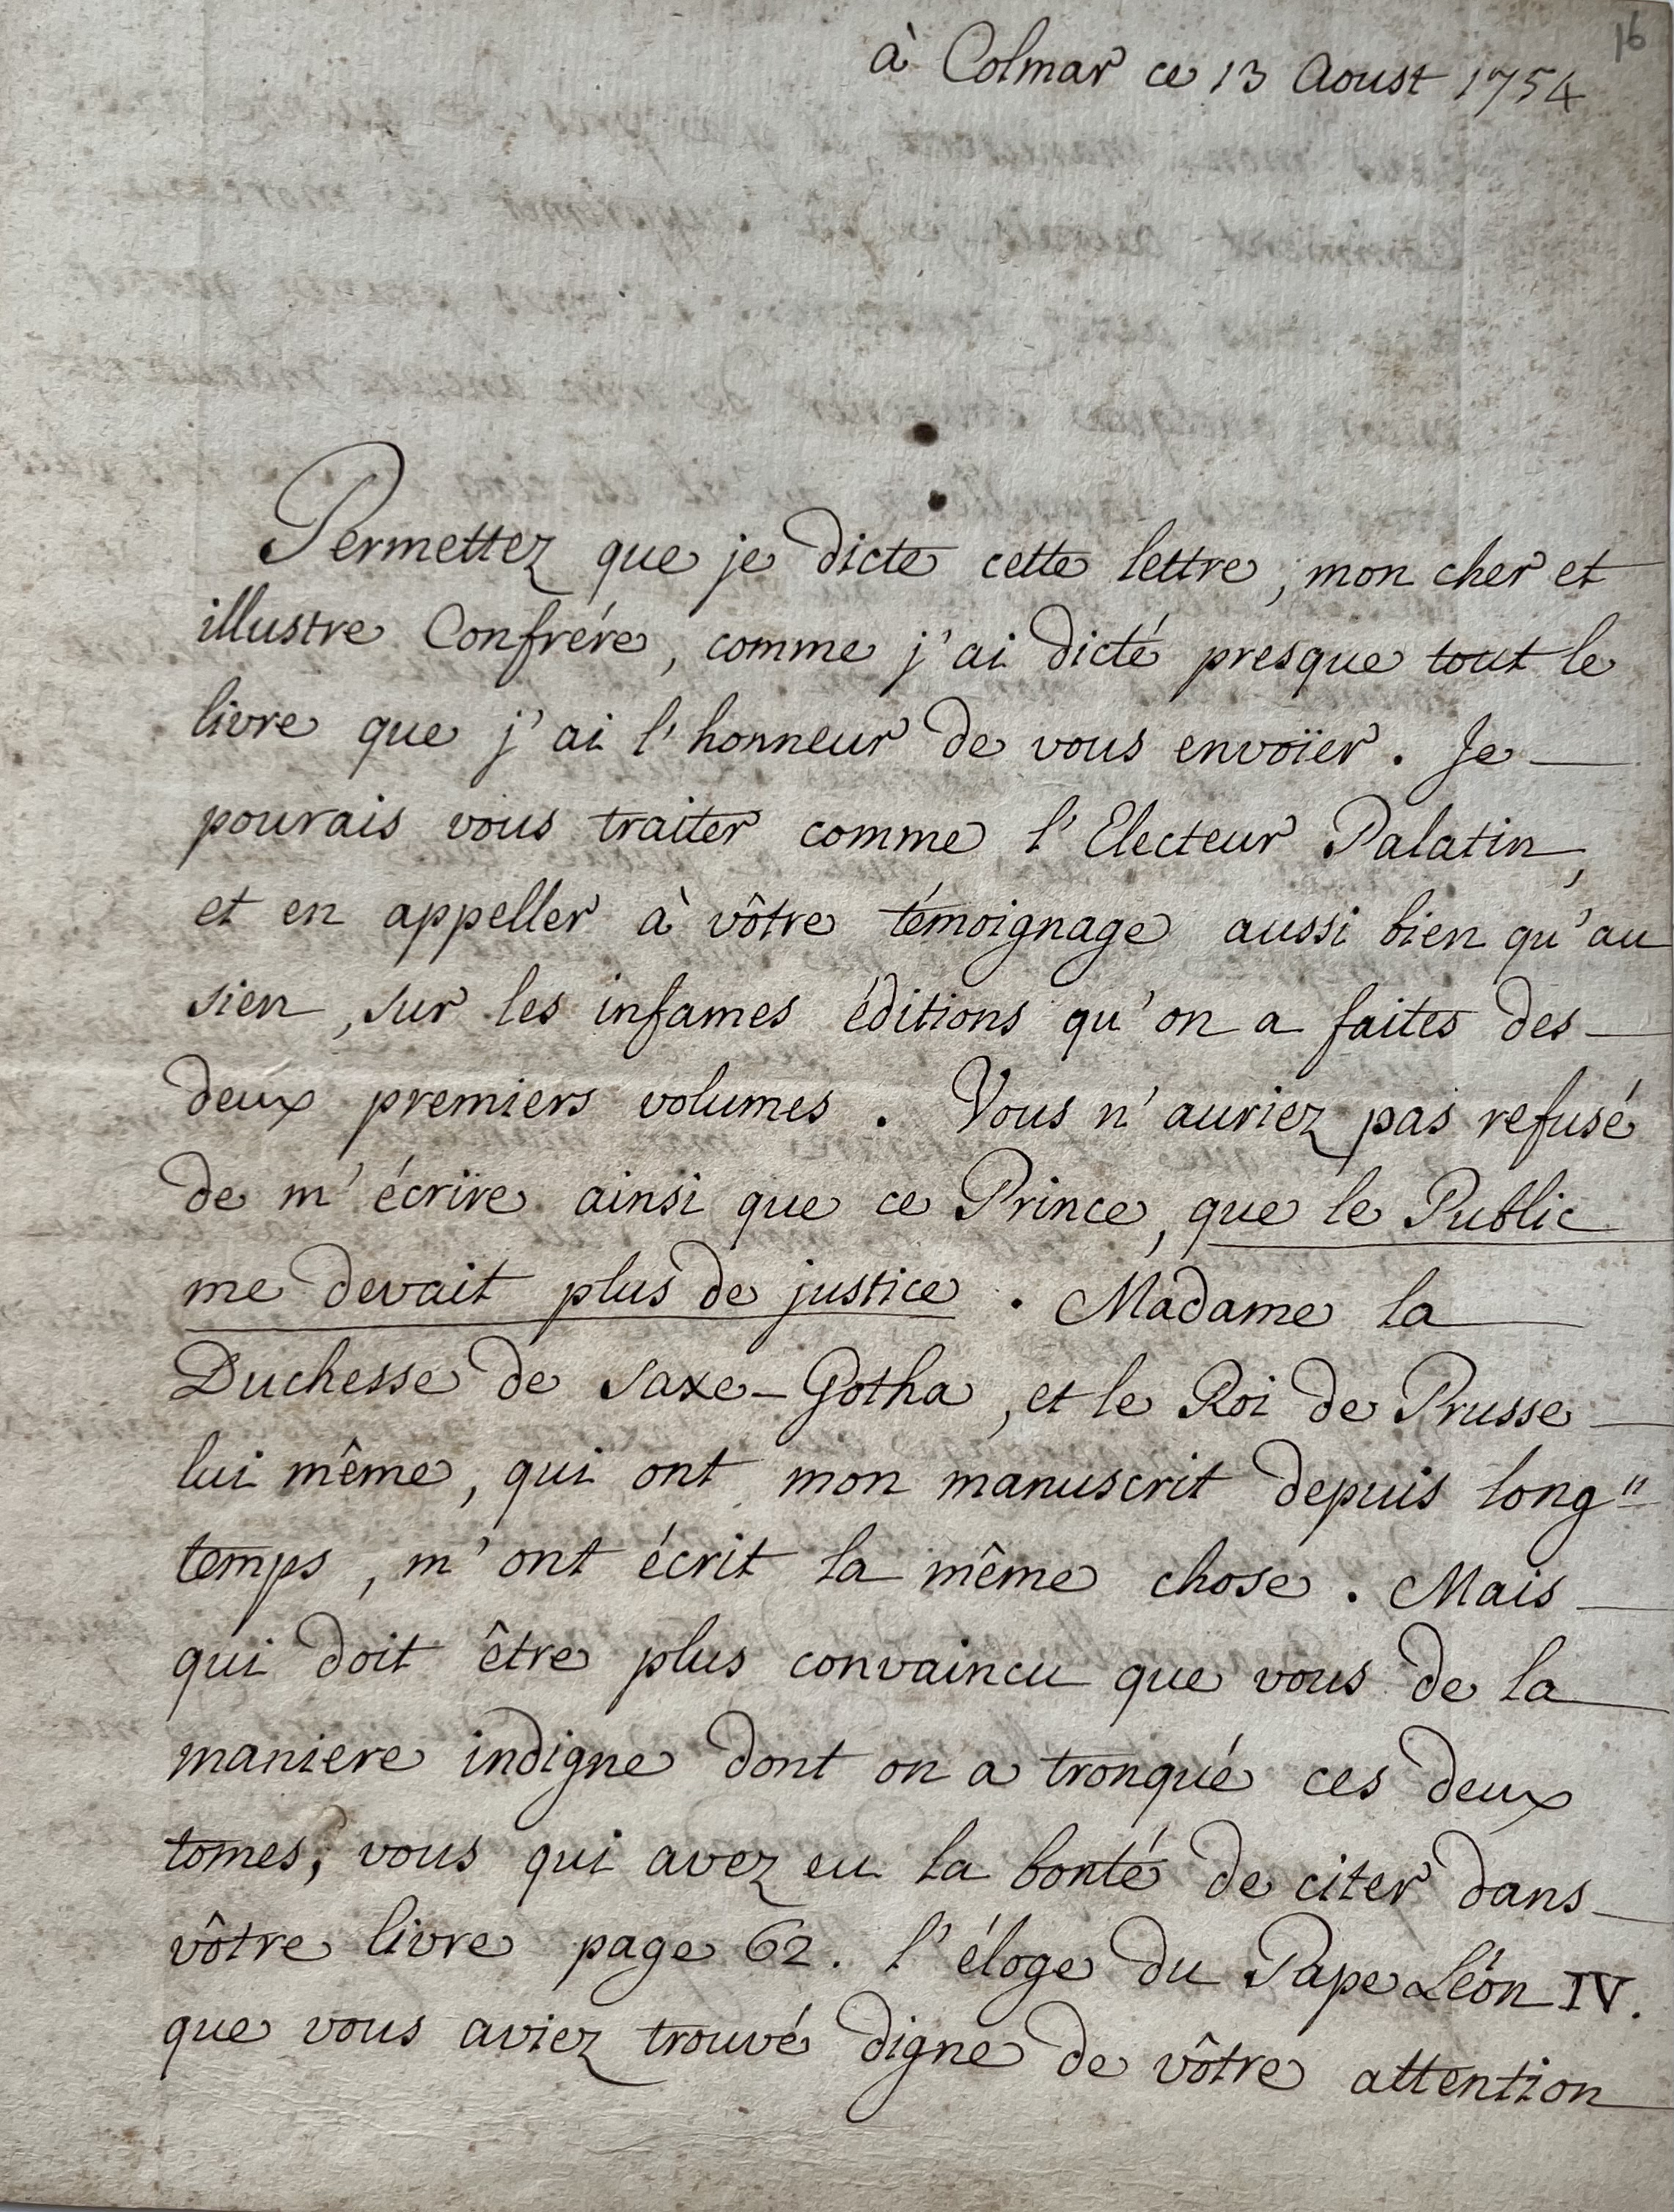 16
à Colmar ce 13 Aoust 1754
Permettez que je dicte cette lettre, mon cher et
illustre Confrére, comme j'ai dicté presque tout le
livre que j'ai l'honneur de vous envoïer. Je
pourais vous traiter comme l'Electeur Palatin,
et en appeller à vôtre témoignage aussi bien qu'au
sien, sur les infames éditions qu'on a faites des
deux premiers volumes. Vous n'auriez pas refusé
de m'écrire ainsi que ce Prince, que le Public
me devait plus de justice. Madame la
Duchesse de Saxe-Gotha, et le Roi de Prusse
lui même, qui ont mon manuscrit depuis long"
temps, m'ont écrit la même chose. Mais
qui doit être plus convaincu que vous de la
maniere indigne dont on a tronqué ces deux
tomes, vous qui avez eu la bonté de citer dans
vôtre livre page 62. l'éloge du Pape Léon IV.
que vous aviez trouvé digne de vôtre attention